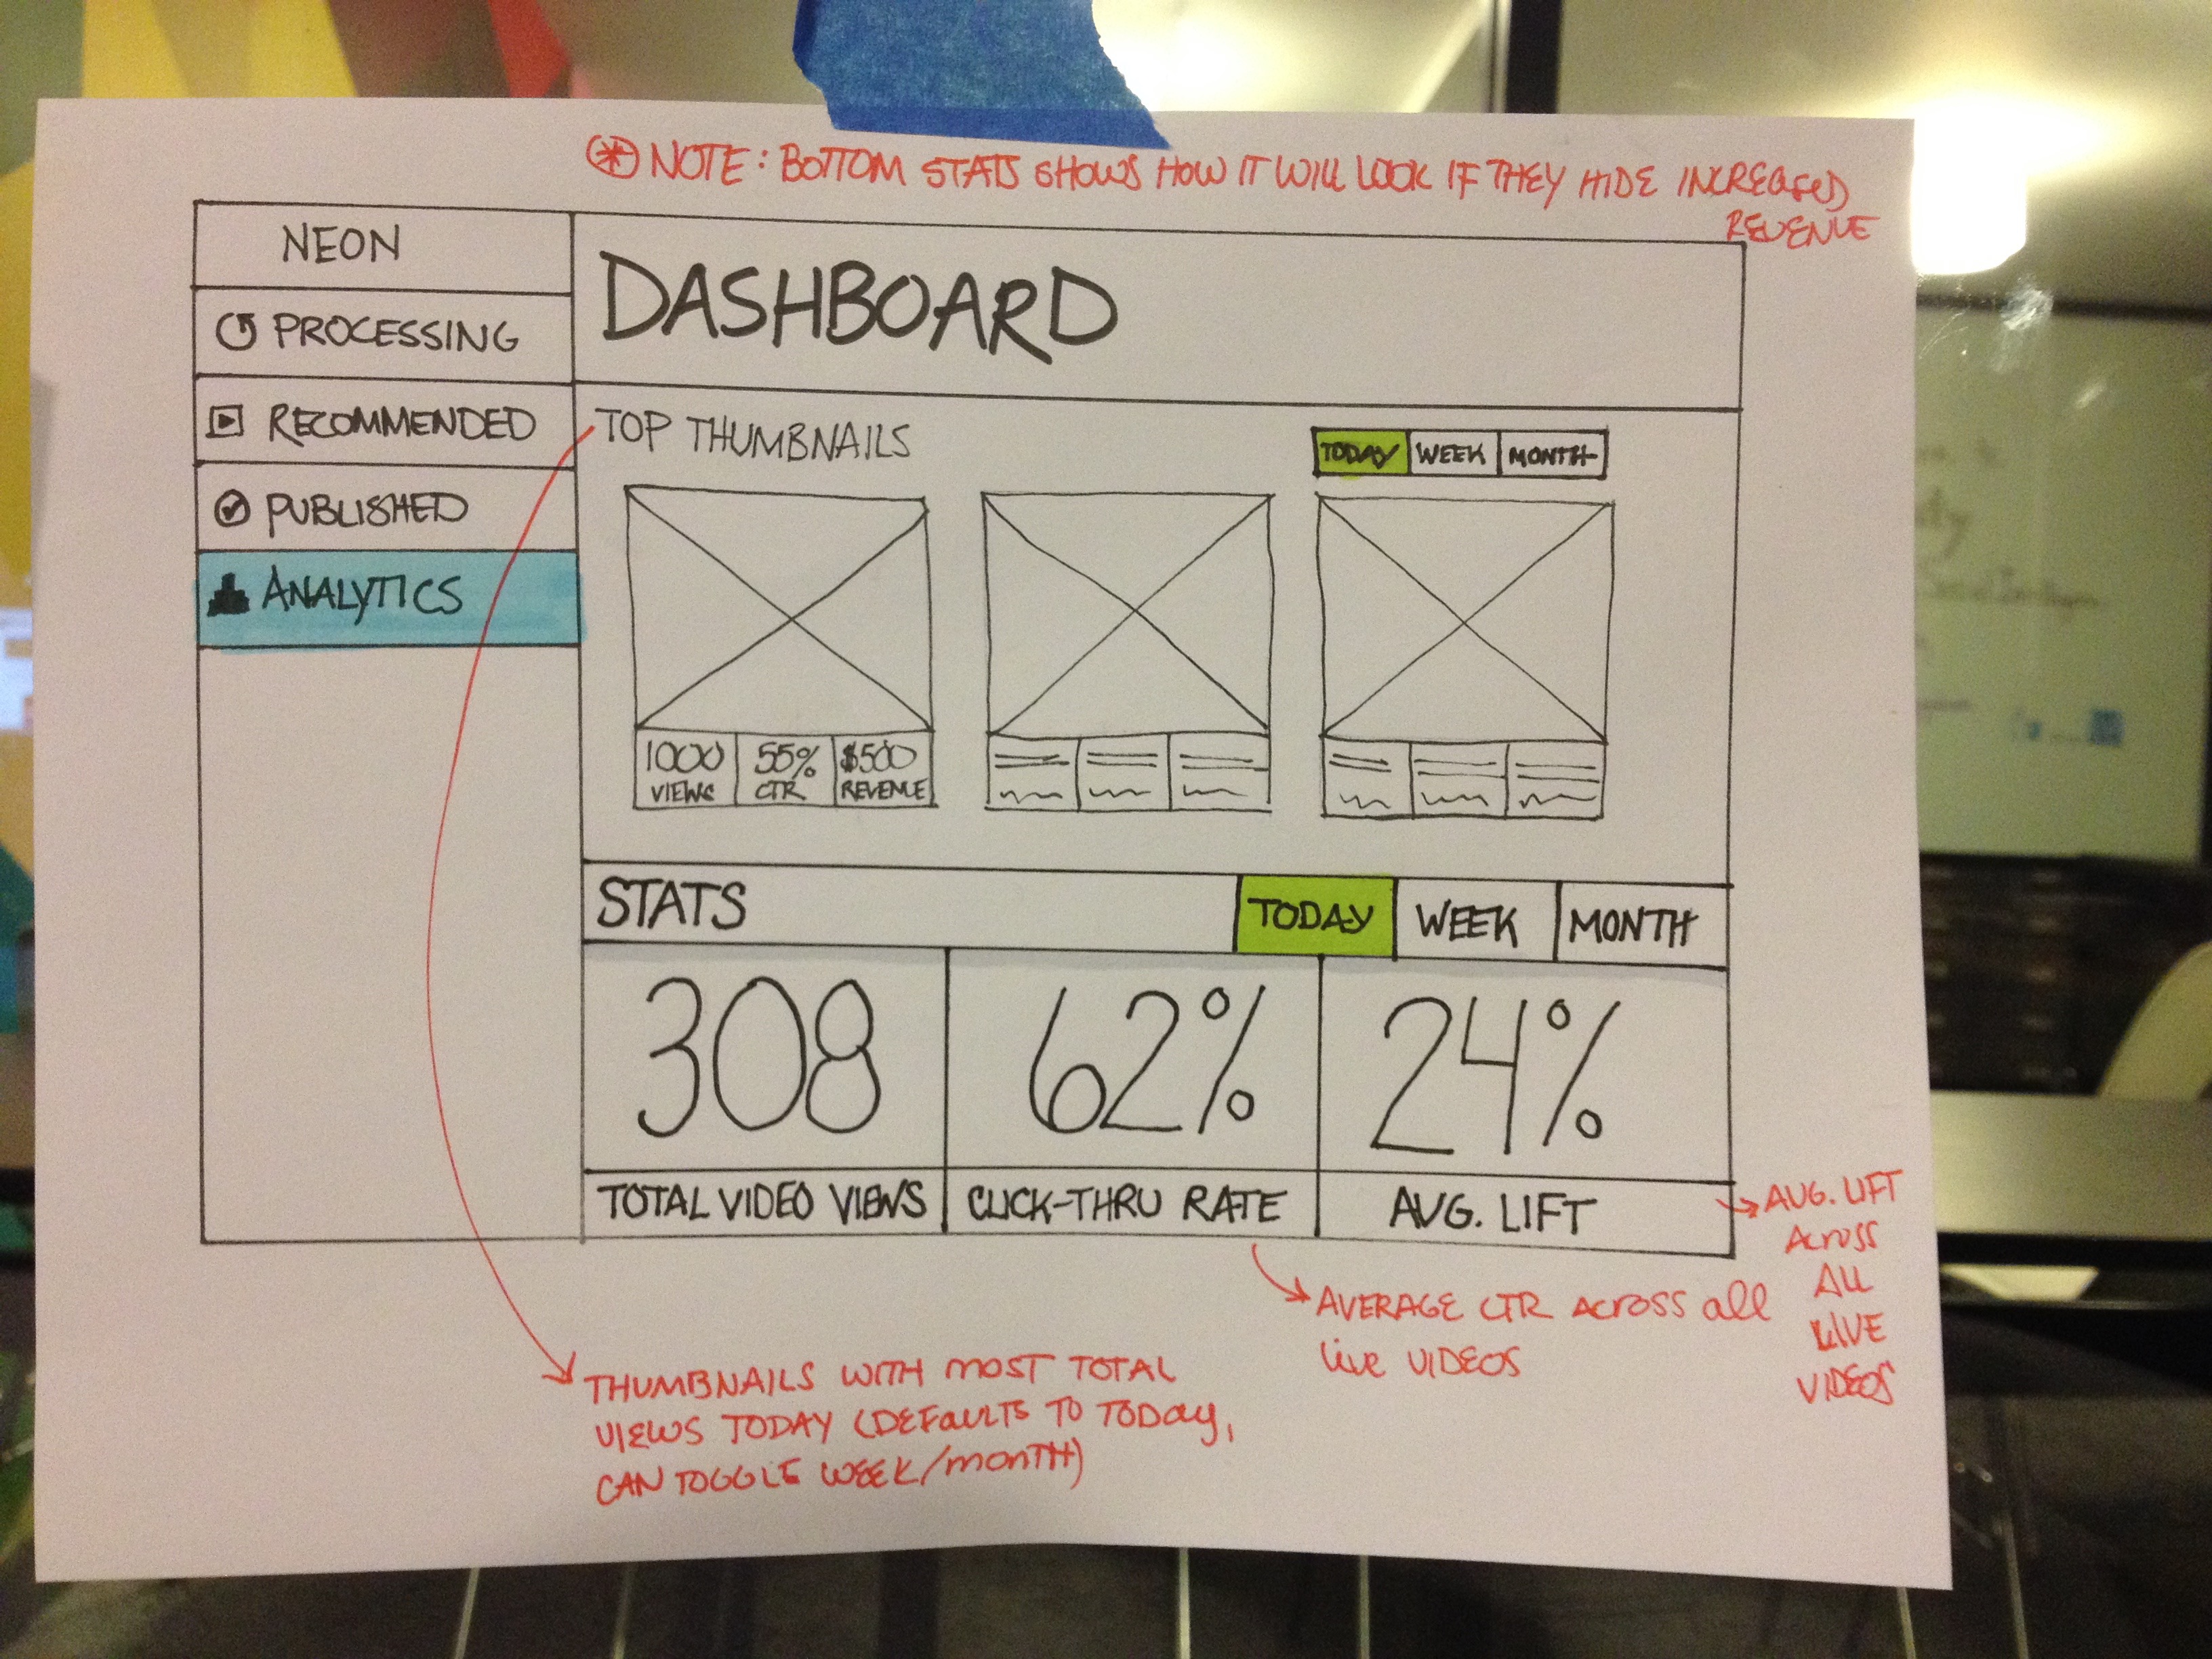 ⊛ NOTE: BOTTOM STATS SHOWS HOW IT WILL LOOK IF THEY HIDE INCREASED
REVENUE
NEON
PROCESSING
RECOMMENDED
PUBLISHED
ANALYTICS
DASHBOARD
TOP THUMBNAILS
TODAY WEEK MONTH
1000 55% $500
VIEWS CTR REVENUE
STATS TODAY WEEK MONTH
308 62% 24%
TOTAL VIDEO VIEWS CLICK-THRU RATE AVG. LIFT
AVG. LIFT
ACROSS
ALL
LIVE
VIDEOS
AVERAGE CTR ACROSS all
live VIDEOS
THUMBNAILS WITH MOST TOTAL
VIEWS TODAY (DEFAULTS TO TODAY,
CAN TOGGLE WEEK/MONTH)